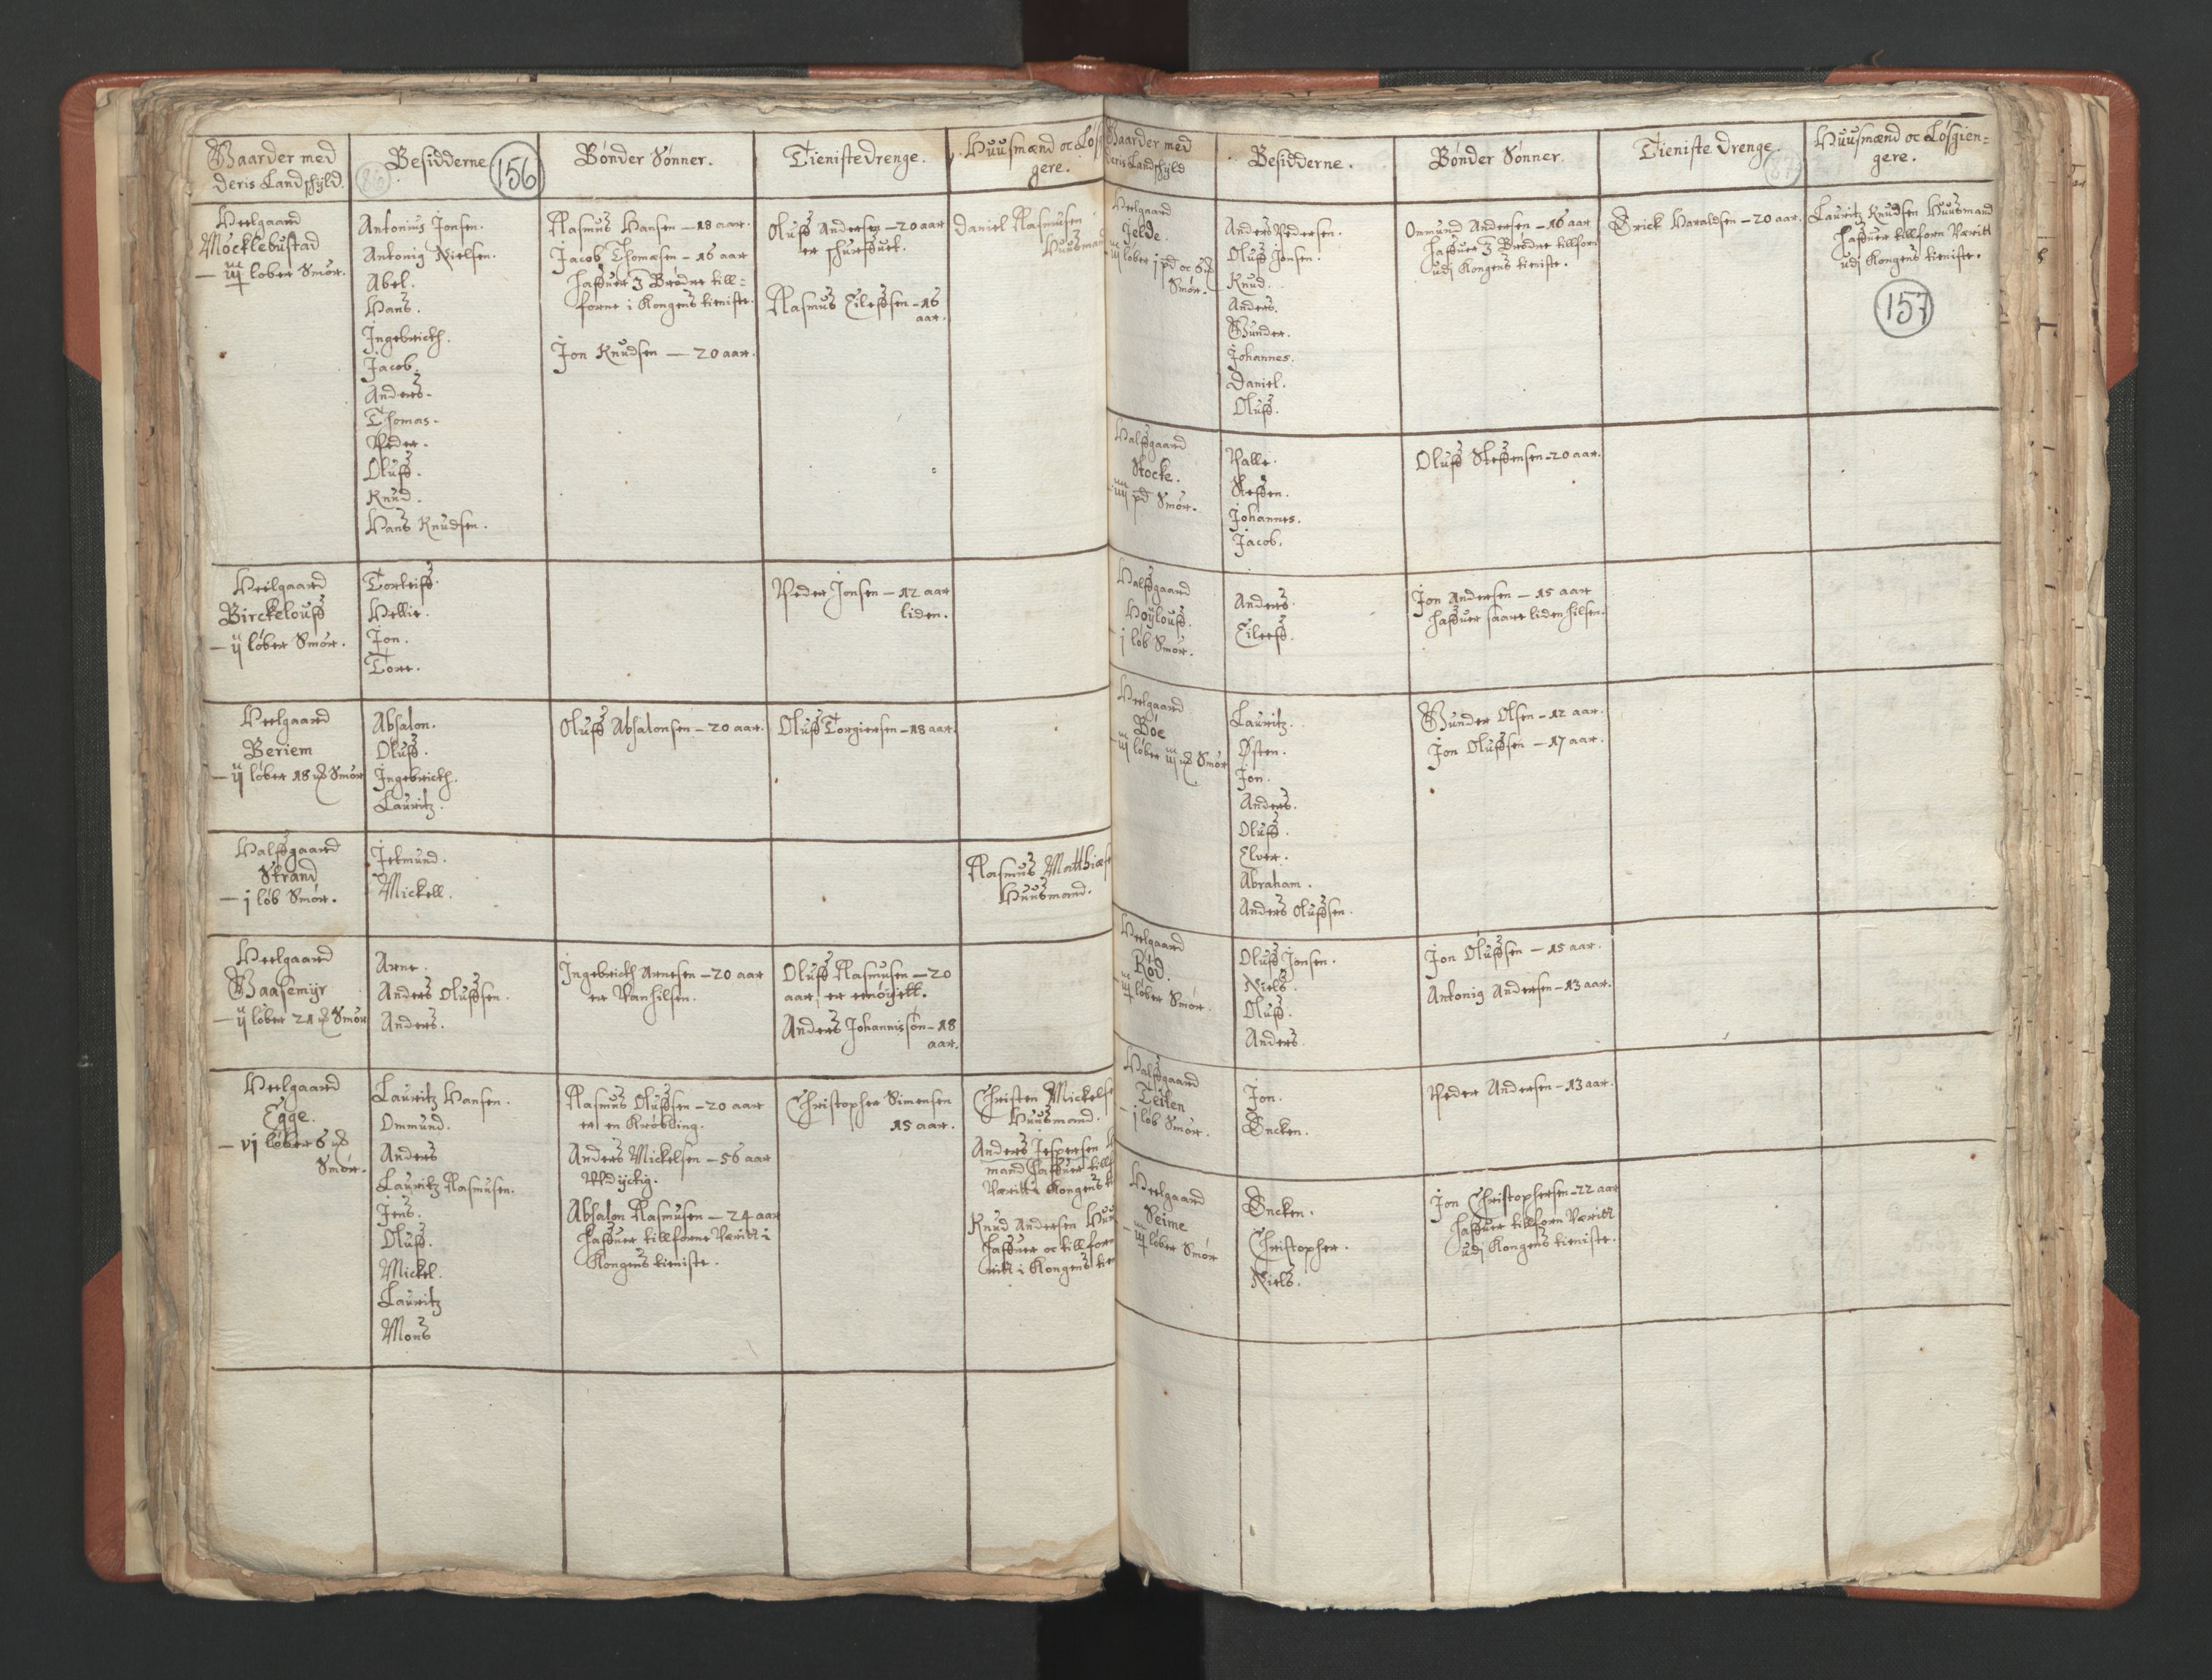 Gaarder med
deris Landskyld.
Besidderne
156
Bønder Sønner.
Tieniste Drenge.
Huusmænd oc Løs
gere.
Heelgaard
Mocklebustad
— iij løber Smør.
Antonius Jonsen.
Antonig Nielsen.
Abel.
Hans.
Ingebricth.
Jacob.
Anders.
Thomas.
Peder.
Oluff.
Knud.
Hans Knudsen.
Rasmus Hansen — 18 aar.
Jacob Thomæsen — 16 aar
haffuer 3 Brødre till-
forne i Kongens tieniste.
Jon Knudsen — 20 aar.
Oluff Andersen — 20 aar
er skurffuet.
Rasmus Eileffsen — 16
aar.
Daniel Rasmusen
Huusmand
Heelgaard
Birckelouff
— ij løber Smør.
Torleiff.
Hellie.
Jon.
Tore.
Peder Jonsen — 12 aar
liden.
Heelgaard
Beriem
— ij løber 18 Smør
Absalon.
Oluff.
Ingebricth.
Lauritz.
Oluff Absalonsen — 20 aar.
Oluff Torgiersen — 18 aar.
Halffgaard
Strand
— j løb Smør.
Jetmund.
Mickell.
Rasmus Matthias
Huusmand.
Heelgaard
Gaasemyr
— ij løber 21 Smør
Arne.
Anders Oluffsen.
Anders.
Ingebricth Arnesen — 20 aar
er Vanhilsen.
Oluff Rasmusen — 20
aar, er eenøyett.
Anders Johannissøn — 18
aar.
Heelgaard
Egge.
— vj løber 6
Smør.
Lauritz Hansen.
Ommund.
Anders
Lauritz Rasmusen.
Jens.
Oluff.
Mickel.
Lauritz
Mons
Rasmus Oluffsen — 20 aar
er en Krøbling.
Anders Mickelsen — 56 aar
Udyctig.
Absalon Rasmusen — 24 aar
haffuer tillforne Væritt i
Kongens tieniste.
Christopher Simensen
15 aar.
Christen Mickels
Huusmand.
Anders Jespersen
mand haffuer till
Væritt i Kongens t
Knud Andersen Huu
haffuer oc tillforn
ritt i Kongens tie
Gaarder med
deris Landskyld
Besidderne.
Bønder Sønner.
Tieniste Drenge.
Huusmænd oc Løsgien-
gere.
157
Heelgaard
Jelde.
iij løber j pd oc 6
Smør.
Anders Pedersen.
Oluff Jonsen.
Knud.
Anders.
Gunder.
Johannes.
Daniel.
Oluff.
Ommund Andersen — 16 aar
haffuer 3 Brødre tillforn
udj Kongens tieniste.
Erick Haraldsen — 20 aar.
Lauritz Knudsen Huusmand
haffuer tillforn Væritt
udj Kongens tieniste.
Halffgaard
Stocke.
iiij pd Smør.
Palle.
Steffen.
Johannes.
Jacob.
Oluff Steffensen — 20 aar.
Halffgaard
Hoylouff.
j løb Smør.
Anders.
Eileff.
Jon Andersen — 15 aar
haffuer saare liden hilsen.
Heelgaard
Bøe
iij løber iij Smør
Lauritz.
Østen.
Jon.
Anders.
Oluff.
Elver.
Abraham.
Anders Oluffsen.
Gunder Olsen — 12 aar.
Jon Oluffsen — 17 aar.
Heelgaard
Rød.
iij løber Smør.
Oluff Jonsen.
Niels.
Oluff.
Anders.
Jon Oluffsen — 15 aar.
Antonig Andersen — 13 aar.
Halffgaard
Teilen
— j løb Smør.
Jon.
Encken.
Peder Andersen — 13 aar.
Heelgaard
Seime
— iij løber Smør
Encken.
Christopher.
Niels.
Jon Christophersen — 22 aar
haffuer tillforn Væritt
udj Kongens tieniste.